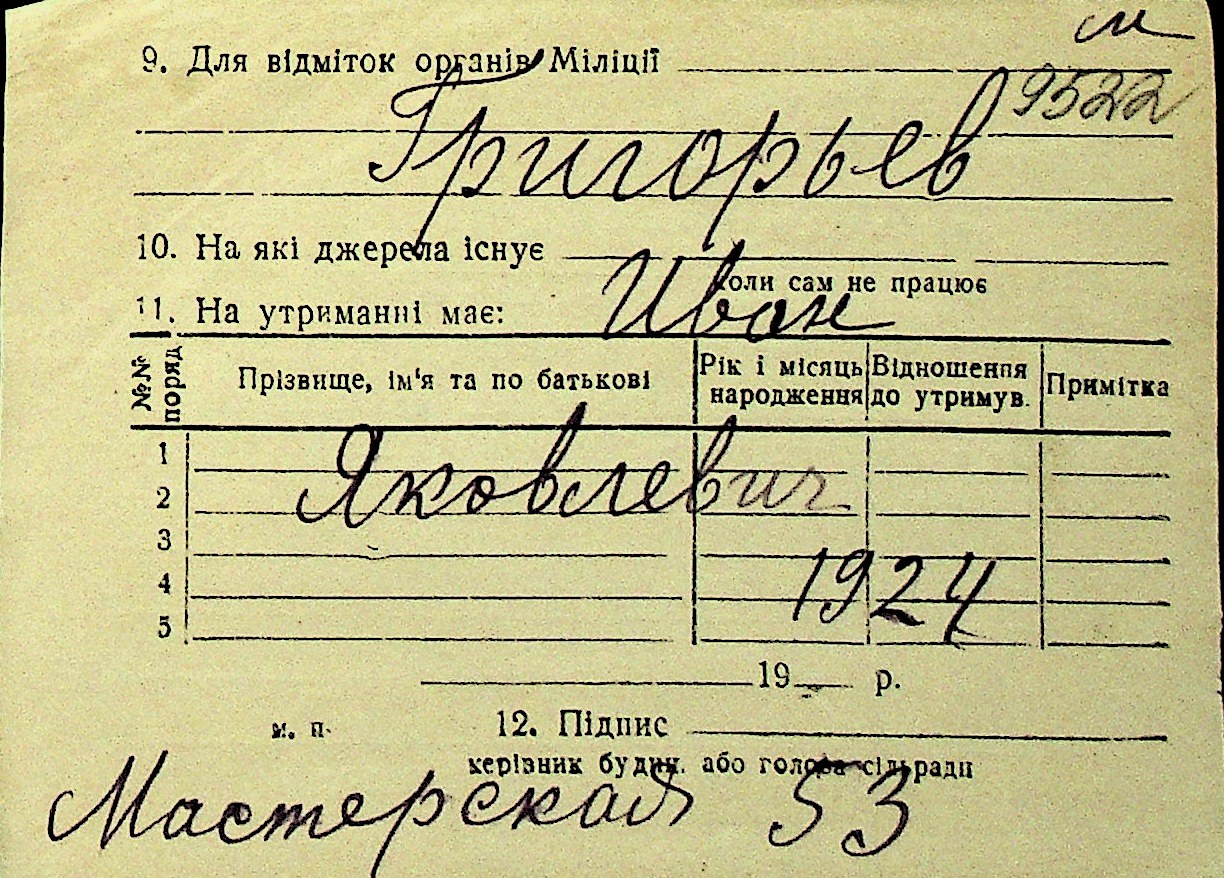 м
9. Для відміток органів Міліції
9522
Григорьев
10. На які джерела існує
коли сам не працює
Иван
11. На утриманні має:
№№ поряд
Прізвище, ім'я та по батькові
Рік і місяць народження
Відношення до утримув.
Примітка
1
Яковлевич
2
3
4
1924
5
19 р.
м. п.
12. Підпис
керівник будин. або голова сільради
Мастерская 53